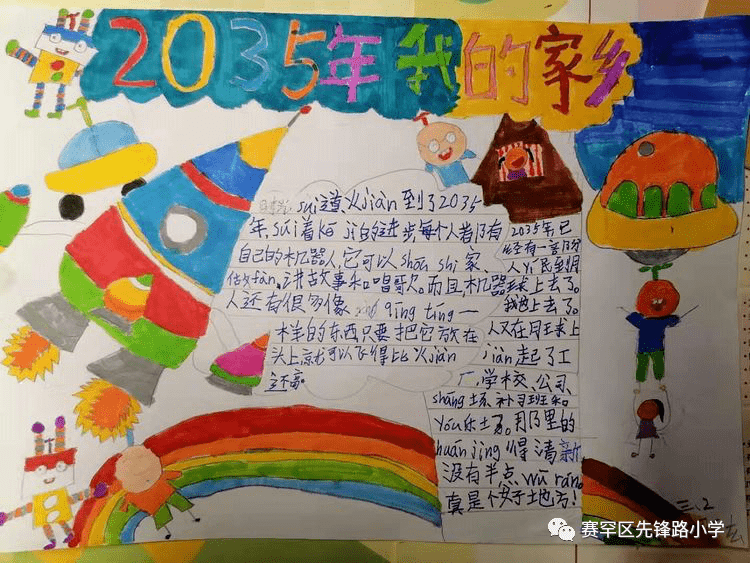 2035年我的家乡
suí道、火jiàn到了2035
年,suí着kē jì的进步,每个人都有
自己的机器人,它可以shōu shi家、
做fàn、讲故事和唱歌。而且,机器
人还有很多像qīng tíng一
样的东西只要把它放在
头上,就可以飞得比火jiàn
还高。
2035年,已
经有一部份
人yí民到月
球上去了。
我也上去了。
人又在月球上
jiàn起了工
厂、学校、公司、
shāng场、补习班和
yóu乐场。那里的
huán jìng得清新
没有半点wū rǎn。
真是个好地方!
三、2
赛罕区先锋路小学